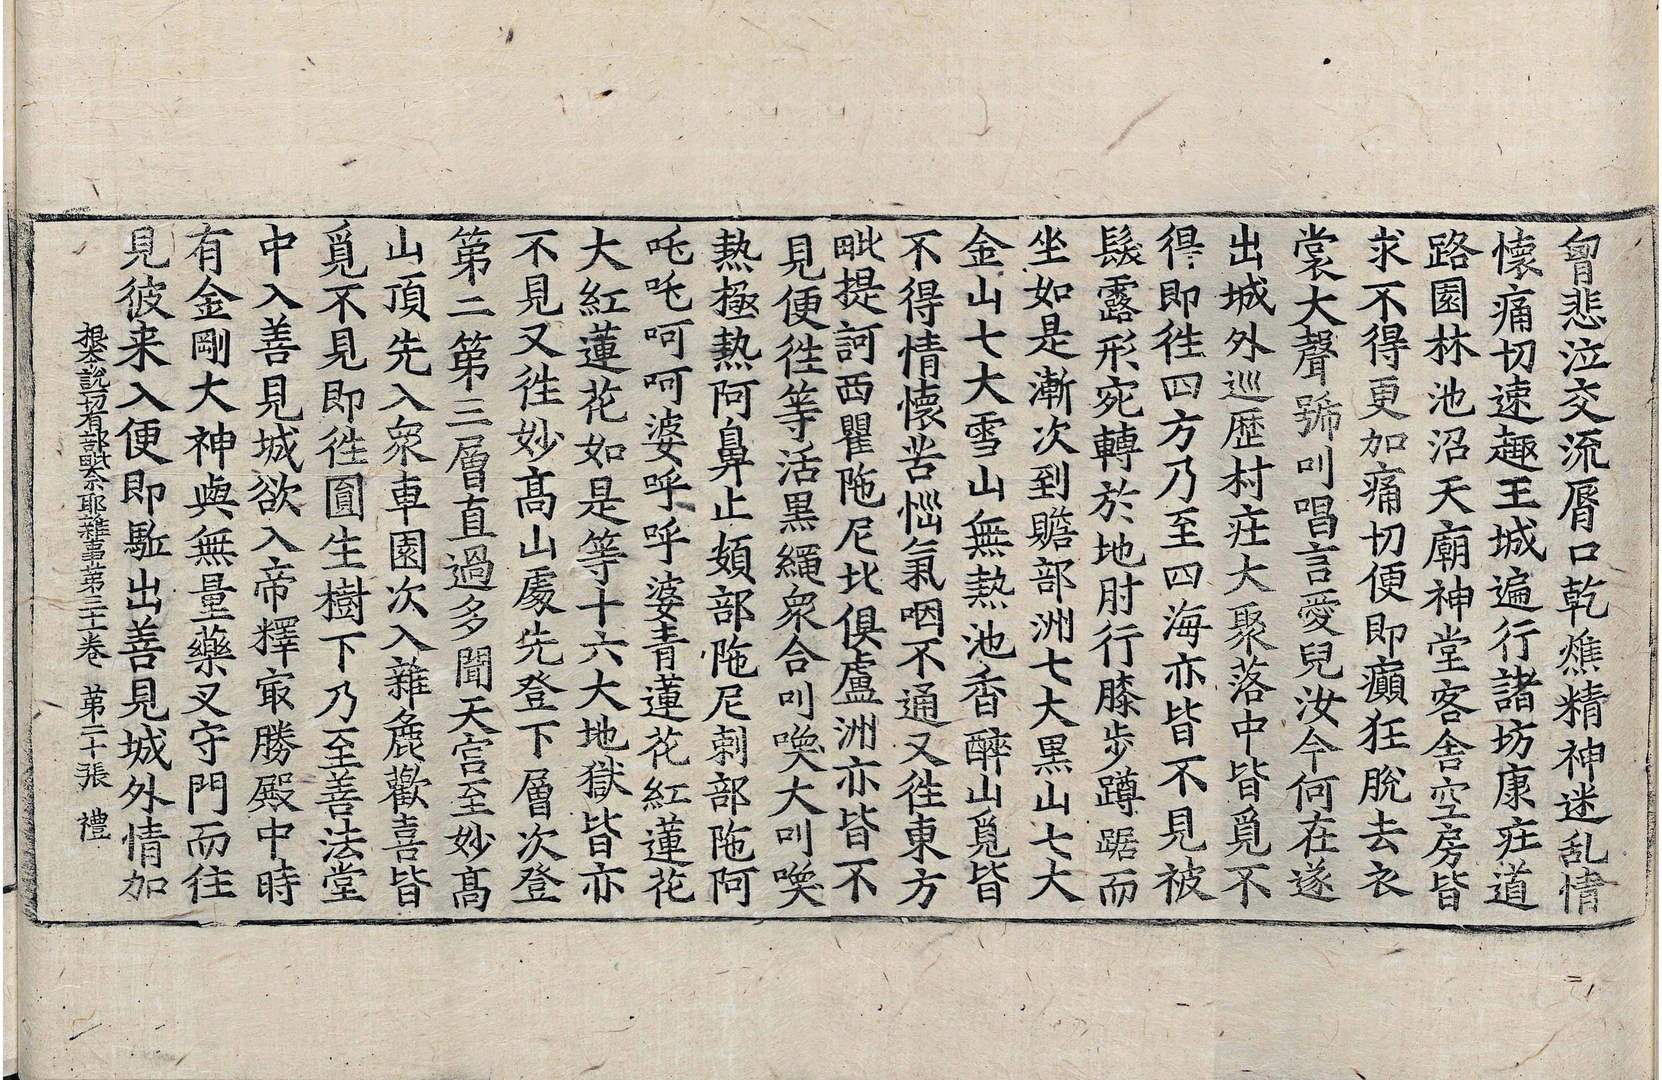 胷悲泣交流脣口乾燋精神迷乱情
懷痛切速趣王城遍行諸坊康庄道
路園林池沼天廟神堂客舎空房皆
求不得更加痛切便即癲狂脫去衣
裳大聲號叫唱言愛兒汝今何在遂
出城外巡歷村庄大聚落中皆覓不
得即徃四方乃至四海亦皆不見被
髮露形宛轉於地肘行膝步蹲踞而
坐如是漸次到贍部洲七大黒山七大
金山七大雪山無熱池香醉山覓皆
不得情懷苦惱氣咽不通又徃東方
毗提訶西瞿陁尼北俱盧洲亦皆不
見便徃等活黒繩衆合叫喚大叫喚
熱極熱阿鼻止頞部陁尼剌部陁阿
吒吒呵呵婆呼呼婆青蓮花紅蓮花
大紅蓮花如是等十六大地獄皆亦
不見又徃妙髙山處先登下層次登
第二第三層直過多聞天宮至妙髙
山頂先入衆車園次入雜麁歡喜皆
覓不見即徃圓生樹下乃至善法堂
中入善見城欲入帝釋㝡勝殿中時
有金剛大神與無量藥叉守門而住
見彼来入便即駈出善見城外情加
根本說一切有部毗奈耶雜事第三十卷　第二十張　禮